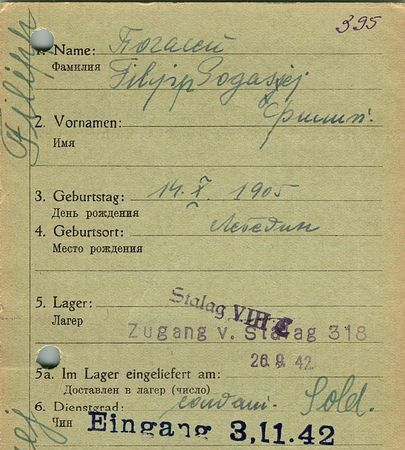 395
Filipp
1. Name: Погасей
Фамилия Filipp Pogassej
2. Vornamen: Филип.
Имя
3. Geburtstag: 14. X. 1905
День рождения
4. Geburtsort: Лебедин
Место рождения
5. Lager: Stalag VIII C
Лагер Zugang v. Stalag 318
26.9.42
5a. Im Lager eingeliefert am:
Доставлен в лагер (число)
6. Dienstgrad: Sold.
Чин Eingang 3.11.42